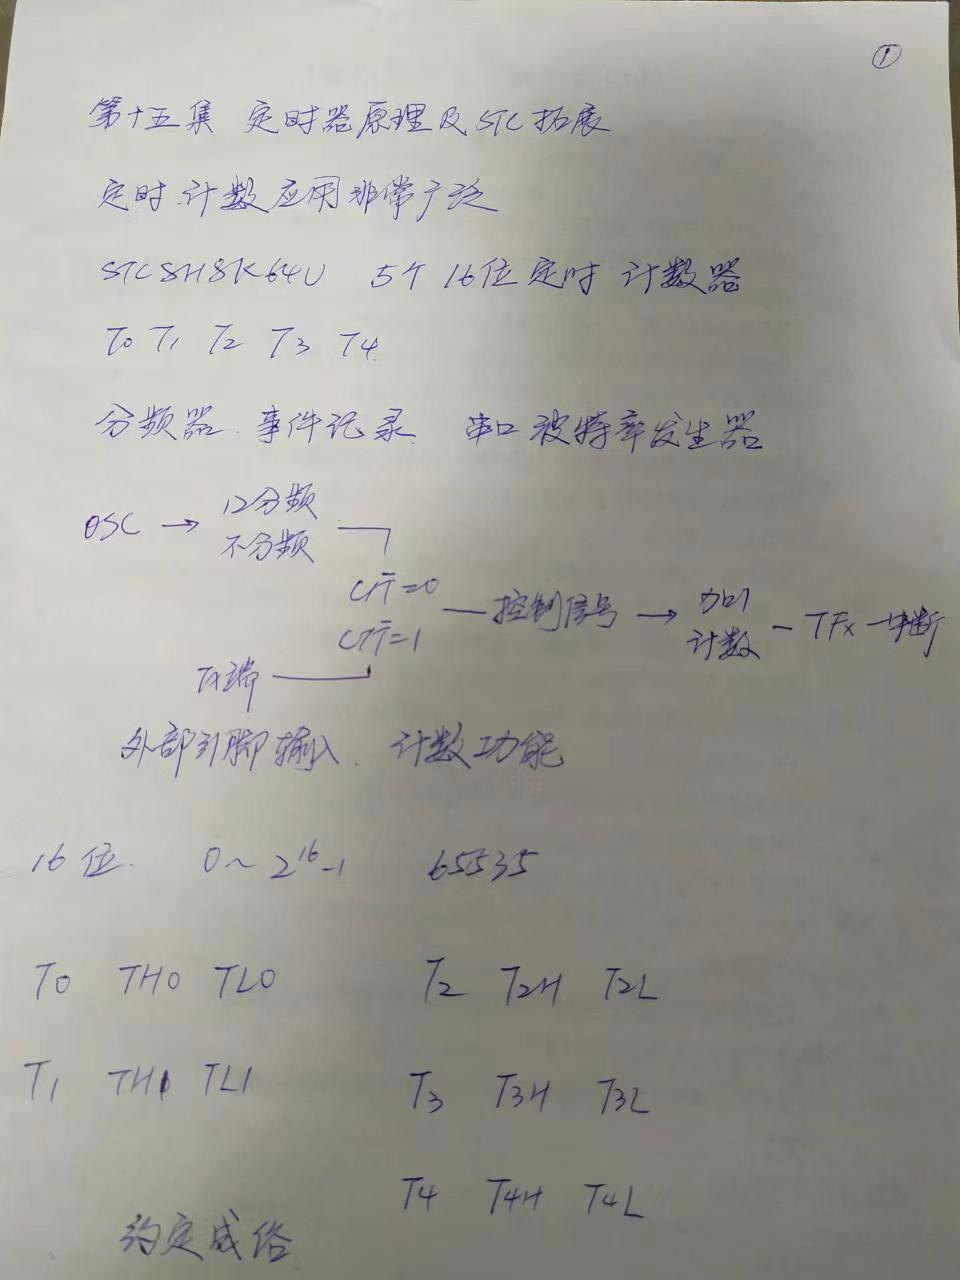 ①
第十五集 定时器原理及STC拓展
定时.计数应用非常广泛
STC8H8K64U 5个 16位定时 计数器
T0 T1 T2 T3 T4
分频器.事件记录. 串口波特率发生器
OSC → 12分频
不分频
C/T̅=0
C/T̅=1 — 控制信号 → 加1
计数 — TFx — 中断
Tx端
外部引脚输入. 计数功能
16位. 0~2^16-1 65535
T0 TH0 TL0 T2 T2H T2L
T1 TH1 TL1 T3 T3H T3L
T4 T4H T4L
约定成俗